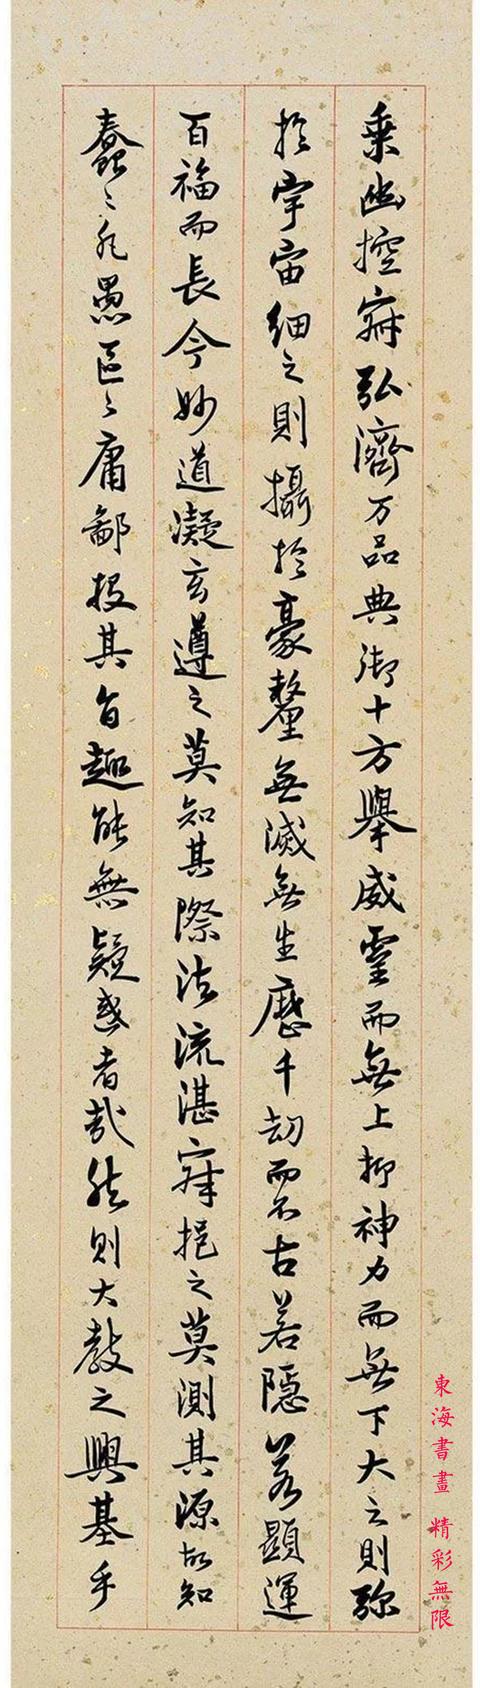 乗幽控寂弘濟万品典御十方舉威靈而無上抑神力而無下大之則弥
於宇宙細之則攝於豪釐無滅無生歷千劫而不古若隱若顯運
百福而長今妙道凝玄遵之莫知其際法流湛寂挹之莫測其源故知
蠢〻凡愚區〻庸鄙投其旨趣能無疑惑者哉然則大教之興基乎
東海書畫 精彩無限